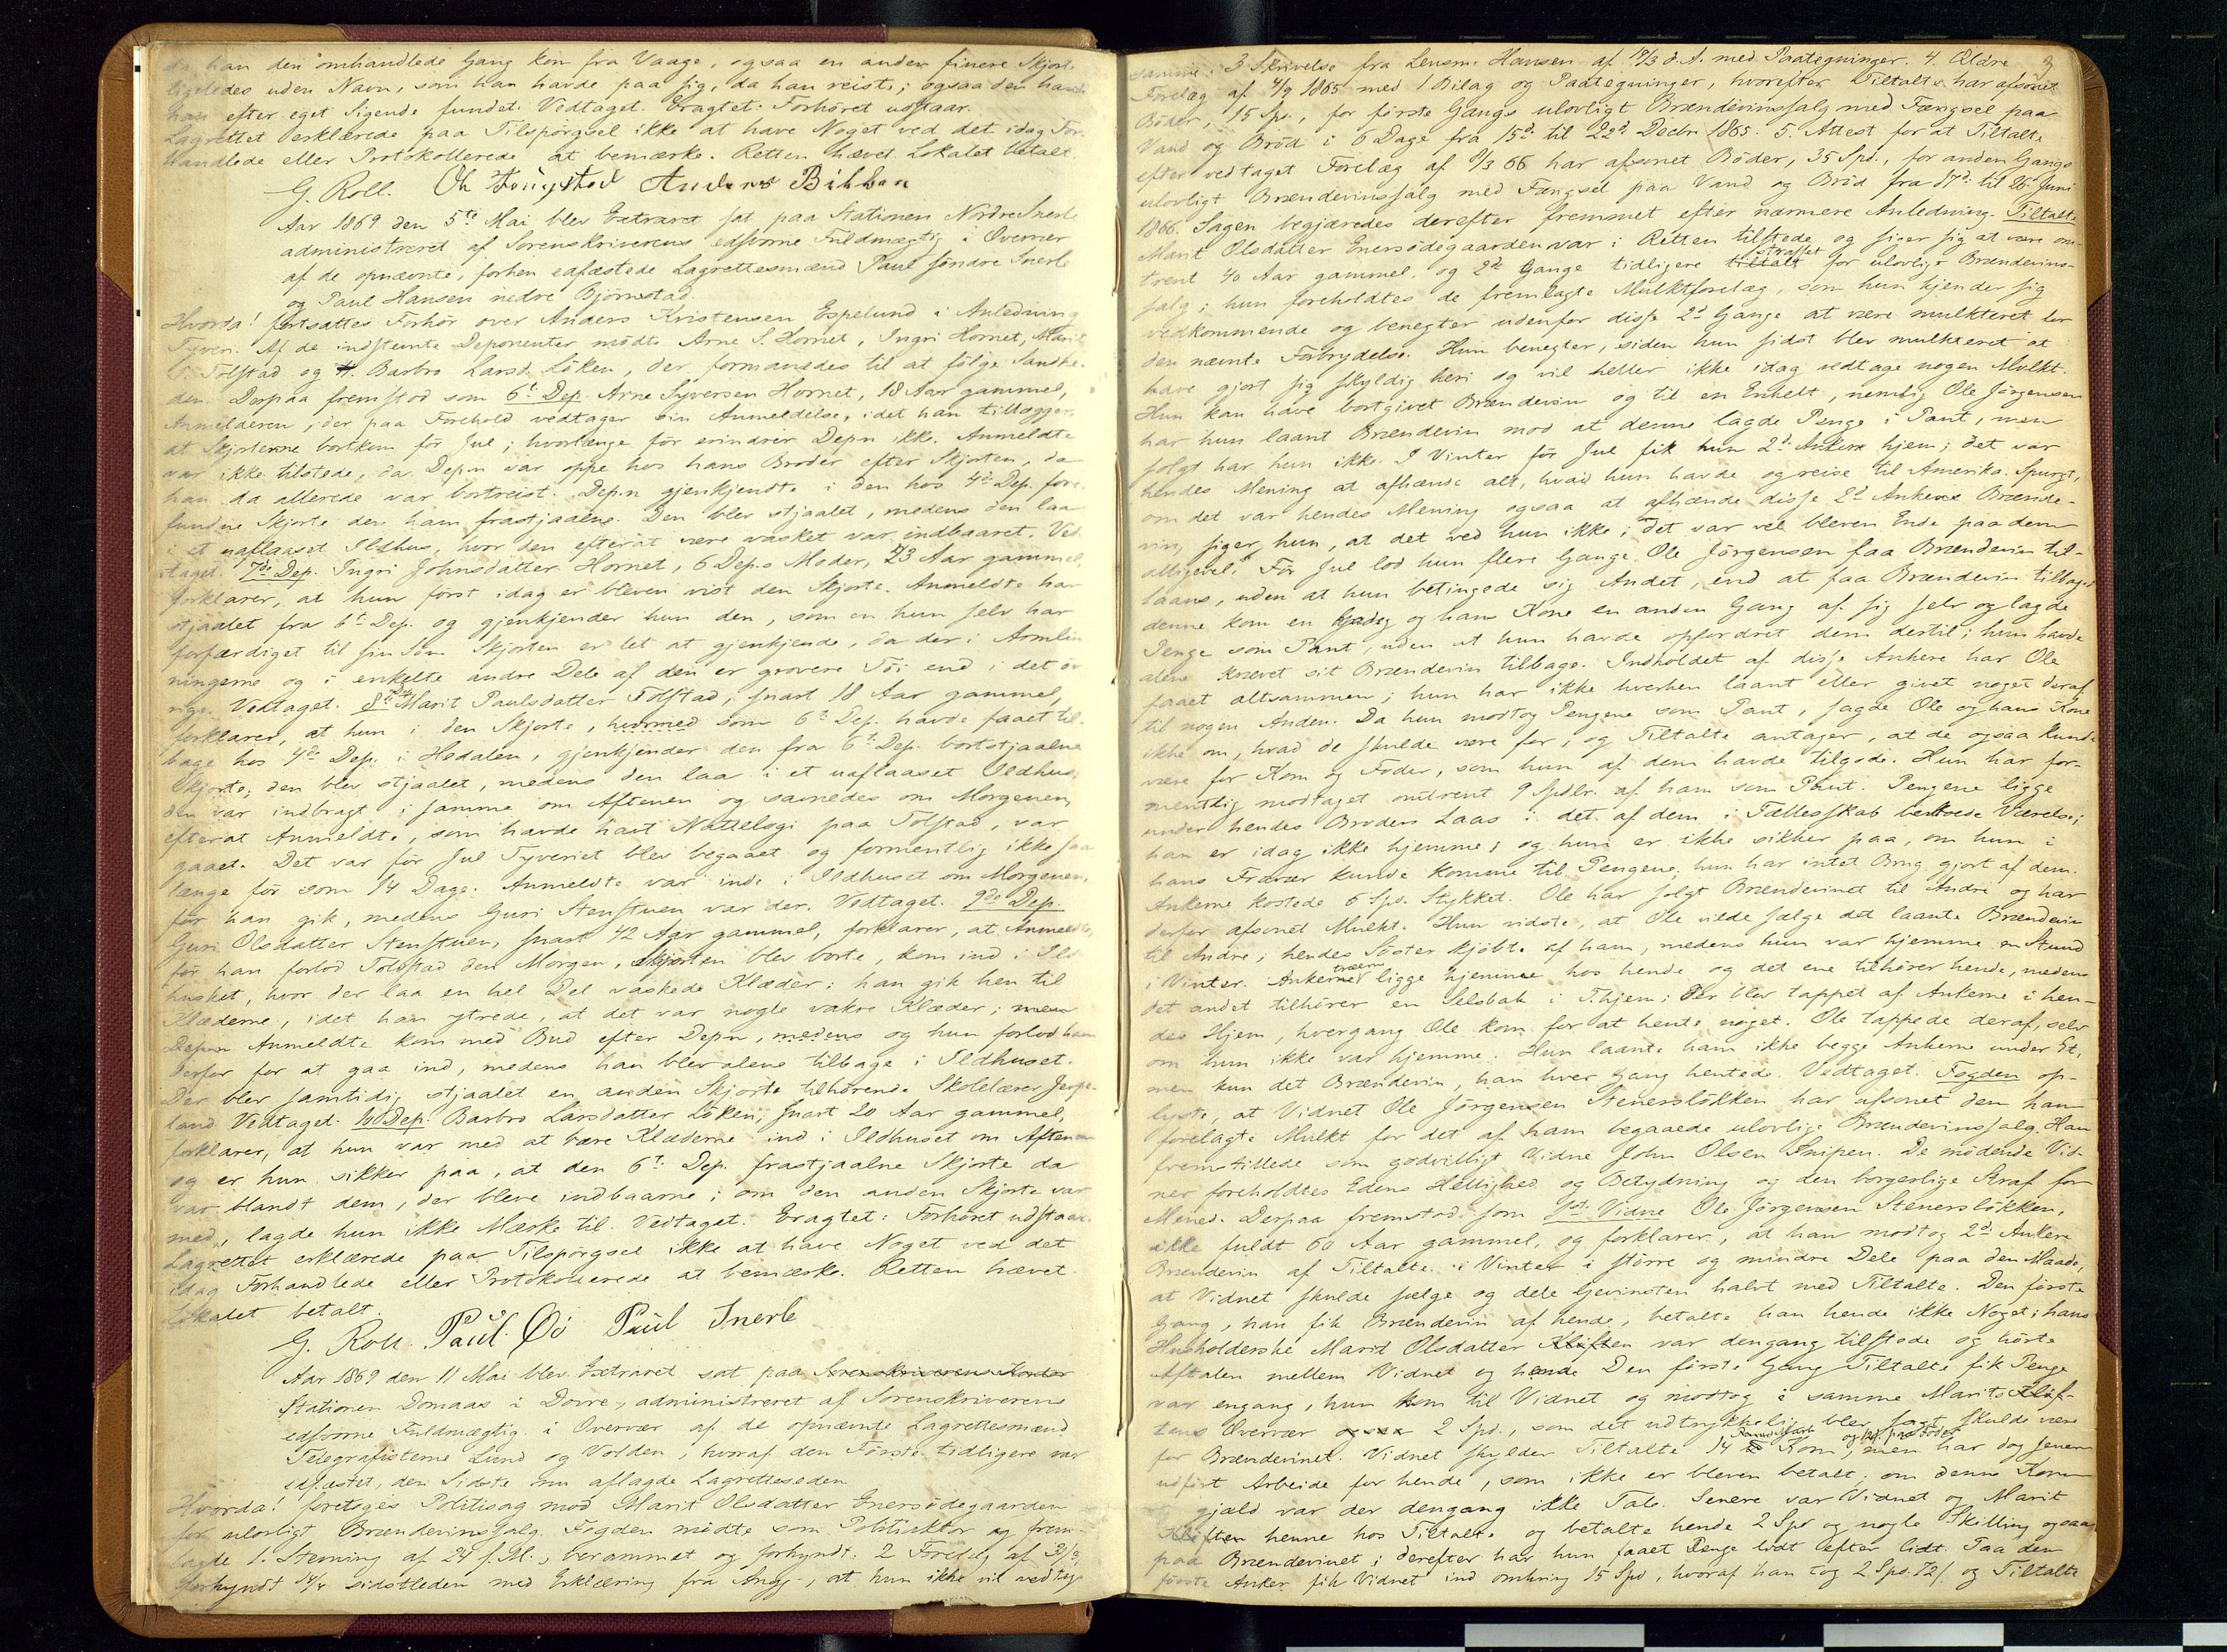 da han den omhandlede Gang kom fra Vaage, ogsaa en anden finere Skjorte
ligeledes uden Navn, som han havde paa sig, da han reiste; ogsaa den havde
han efter eget Sigende fundet. Vedtaget. Eragtet: Forhøret udstaar.
Lagrettet erklærede paa Tilspørgsel ikke at have Noget ved det idag For-
handlede eller Protokollerede at bemærke. Retten hævet. Lokalet betalt.
G. Roll. Anders
Aar 1869 den 5te Mai blev Extraret sat paa Stationen Nordre Snerle
administreret af Sorenskriverens edsvorne Fuldmægtig i Overvær
af de opnævnte, forhen edfæstede Lagrettesmænd Paul søndre Snerle
og Paul Hansen nedre Bjørnstad.
Hvorda! fortsattes Forhør over Anders Kristensen Espelund i Anledning
Tyveri. Af de indstevnte Deponenter mødte Arne S. Hornet, Ingri Hornet, Marit
P. Tolstad og Barbro Larsd. Løken, der formanedes til at følge Sandhe-
den. Derpaa fremstod som 6t Dep. Arne Syversen Hornet, 18 Aar gammel,
Anmelderen, der paa Forehold vedtager sin Anmeldelse, idet han tillægger,
at Skjorterne bortkom før Jul; hvorlænge før erindrer Dep.n ikke. Anmeldte
var ikke tilstede, da Dep.n var oppe hos hans Broder efter Skjorten, da
han da allerede var bortreist. Dep.n gjenkjendte i den hos 4de Dep. fore-
fundne Skjorte den ham frastjaalne. Den blev stjaalet, medens den laa
i et uaflaaset Ildhus, hvor den efterat være vasket var indbaaret. Ved-
taget. 7de Dep. Ingri Johnsdatter Hornet, 6 Dep.s Moder, 43 Aar gammel,
forklarer, at hun først idag er bleven vist den Skjorte. Anmeldte har
stjaalet fra 6t Dep. og gjenkjender hun den, som en hun selv har
forfærdiget til sin Søn. Skjorten er let at gjenkjende, da der i Armlin-
ningerne og i enkelte andre Dele af den er grovere Tøi end i det øv-
rige. Vedtaget. 8de Dep. Marit Paulsdatter Tolstad, snart 18 Aar gammel,
forklarer, at hun i den Skjorte, som 6t Dep. havde faaet til-
bage hos 4de Dep. i Hedalen, gjenkjender den fra 6t Dep. bortstjaalne
Skjorte; den blev stjaalet, medens den laa i et uaflaaset Ildhus;
den var indbragt i samme om Aftenen og savnedes om Morgenen,
efterat Anmeldte, som havde havt Natteloge paa Tolstad, var
gaaet. Det var før Jul Tyveriet blev begaaet og formentlig ikke saa
længe før som 14 Dage. Anmeldte var inde i Ildhuset om Morgenen,
før han gik, medens Guri Stenstuen var der. Vedtaget. 9de Dep.
Guri Olsdatter Stenstuen, snart 42 Aar gammel, forklarer, at Anmeldte,
før han forlod Tolstad den Morgen, Skjorten blev borte, kom ind i Ild-
huset, hvor der laa en hel Del vaskede Klæder; han gik hen til
Klæderne, idet han ytrede, at det var nogle vakre Klæder; men
Anmeldte kom med Bud efter Dep.n, og hun forlod ham
derfor for at gaa ind, medens han blev alene tilbage i Ildhuset.
Der blev samtidig stjaalet en anden Skjorte tilhørende Skolelærer Jespe-
land. Vedtaget. 10de Dep. Barbro Larsdatter Løken, snart 20 Aar gammel,
forklarer, at hun var med at bære Klæderne ind i Ildhuset om Aftenen
og er hun sikker paa, at den 6t Dep. frastjaalne Skjorte da
var blandt dem, der bleve indbaarne; om den anden Skjorte var
med, lagde hun ikke Mærke til. Vedtaget. Eragtet: Forhøret udstaar.
Lagrettet erklærede paa Tilspørgsel ikke at have Noget ved det
idag Forhandlede eller Protokollerede at bemærke. Retten hævet.
Lokalet betalt.
G. Roll. Paul Øi Paul Snerle
Aar 1869 den 11 Mai blev Extraret sat paa Sorenskriverens Kontor
Stationen Domaas i Dovre, administreret af Sorenskriverens
edsvorne Fuldmægtig i Overvær af de opnævnte Lagrettesmænd
Telegrafisterne Lund og Volden, hvoraf den Første tidligere var
edfæstet, den Sidste nu aflagde Lagretteseden.
Hvorda! foretoges Politisag mod Marit Olsdatter Enersødegaarden
for ulovligt Brændevinssalg. Fogden mødte som Politiaktor og frem-
lagde 1. Stevning af 24 f. M., berammet og forkyndt. 2 Forelæg af
forkyndt 14/4 sidstleden med Erklæring fra Angj., at hun ikke vil vedtage
samme. 3 Skrivelse fra Lensm. Hansen af 19/3 d. A. med Paategninger. 4. Ældre
Forelæg af 4/9 1865 med 1 Bilag og Paategninger, hvorefter Tiltalte har afsonet
Bøder, 15 Sp., for første Gangs ulovligt Brændevinssalg med Fængsel paa
Vand og Brød i 6 Dage fra 15d til 22d Decbr 1865. 5. Attest for at Tiltalte
efter vedtaget Forelæg af 9/3 66 har afsonet Bøder, 35 Spd., for anden Gangs
ulovligt Brændevinssalg med Fængsel paa Vand og Brød fra 17d til 26 Juni
1866. Sagen begjæredes derefter fremmet efter nærmere Anledning. Tiltalte
Marit Olsdatter Enersødegaarden var i Retten tilstede og siger sig at være om-
trent 40 Aar gammel og 2de Gange tidligere tiltalt straffet for ulovligt Brændevins-
salg; hun foreholdtes de fremlagte Mulktforelæg, som hun kjender sig
vedkommende og benegter udenfor disse 2d Gange at være mulkteret for
den nævnte Forbrydelse. Hun benegter, siden hun sidst blev mulkteret at
have gjort sig skyldig heri og vil heller ikke idag vedtage nogen Mulkt.
Hun kan have bortgivet Brændevin og til en Enkelt, nemlig Ole Jørgensen
har hun laant Brændevin mod at denne lagde Penge i Pant, men
solgt har hun ikke. I Vinter før Jul fik hun 2d Ankere hjem; det var
hendes Mening at afhænde alt, hvad hun havde og reise til Amerika. Spurgt,
om det var hendes Mening ogsaa at afhænde disse 2d Ankere Brænde-
vin, siger hun, at det ved hun ikke; det var vel bleven Ende paa dem
alligevel. Før Jul lod hun flere Gange Ole Jørgensen faa Brændevin til-
laans, uden at hun betingede sig Andet, end at faa Brændevin tilbage;
denne kom en Gang og hans Kone en anden Gang af sig selv og lagde
Penge som Pant, uden at hun havde opfordret dem dertil; hun havde
alene krævet sit Brændevin tilbage. Indholdet af disse Ankere har Ole
faaet altsammen; hun har ikke hverken laant eller givet noget deraf
til nogen Anden. Da hun modtog Pengene som Pant, sagde Ole og hans Kone
ikke om, hvad de skulde være for, og Tiltalte antager, at de ogsaa kunde
være for Korn og Foder, som hun af dem havde tilgode. Hun har for-
mentlig modtaget omtrent 9 Spdlr. af ham som Pant. Pengene ligge
under hendes Broders Laas i det af dem i Fællesskab beboede Værelse;
han er idag ikke hjemme, og hun er ikke sikker paa, om hun i
hans Fravær kunde komme til Pengene; hun har intet Brug gjort af dem.
Ankerne kostede 6 Spd. Stykket. Ole har solgt Brændevinet til Andre og har
derfor afsonet Mulkt. Hun vidste, at Ole vilde sælge det laante Brændevin
til Andre; hendes Søster kjøbte af ham, medens hun var hjemme en Stund
i Vinter. Ankertræerne ligge hjemme hos hende og det ene tilhører hende, medens
det andet tilhører en Selsbak i T.hjem; Der blev tappet af Ankerne i hen-
des Hjem, hvergang Ole kom for at hente noget. Ole tappede deraf, selv
om hun ikke var hjemme. Hun laante ham ikke begge Ankerne under Et,
men kun det Brændevin, han hver Gang hentede. Vedtaget. Fogden op-
lyste, at Vidnet Ole Jørgensen Stenersløkken har afsonet den ham
forelagte Mulkt for det af ham begaaede ulovlige Brændevinssalg. Han
fremstillede som godvilligt Vidne John Olsen Snipen. De mødende Vid-
ner foreholdtes Edens Hellighed og Betydning og den borgerlige Straf for
Mened. Derpaa fremstod som 1st. Vidne Ole Jørgensen Stenersløkken,
ikke fuldt 60 Aar gammel, og forklarer, at han modtog 2d Ankere
Brændevin af Tiltalte i Vinter i større og mindre Dele paa den Maade,
at Vidnet skulde sælge og dele Gevinsten halvt med Tiltalte. Den første
Gang, han fik Brændevin af hende, betalte han hende ikke Noget; hans
Husholderske Marit Olsdatter Kløften var dengang tilstede og hørte
Aftalen mellem Vidnet og hende. Den første Gang Tiltalte fik Penge
var engang, hun kom til Vidnet og modtog i samme Marits Kløf-
tens Overvær 2 Spd., som det udtrykkelig blev sagt skulde være
for Brændevinet. Vidnet skylder Tiltalte 14 Korn, men har dog senere
udført Arbeide for hende, som ikke er bleven betalt; om denne Korn-
gjæld var der dengang ikke Tale. Senere var Vidnet og Marit
Kløften henne hos Tiltalte og betalte hende 2 Spd og nogle Skilling ogsaa
paa Brændevinet; derefter har hun faaet Penge lidt efter lidt. Paa den
første Anker fik Vidnet ind omkring 15 Spd, hvoraf han tog 2 Spd. 72/ og Tiltalte